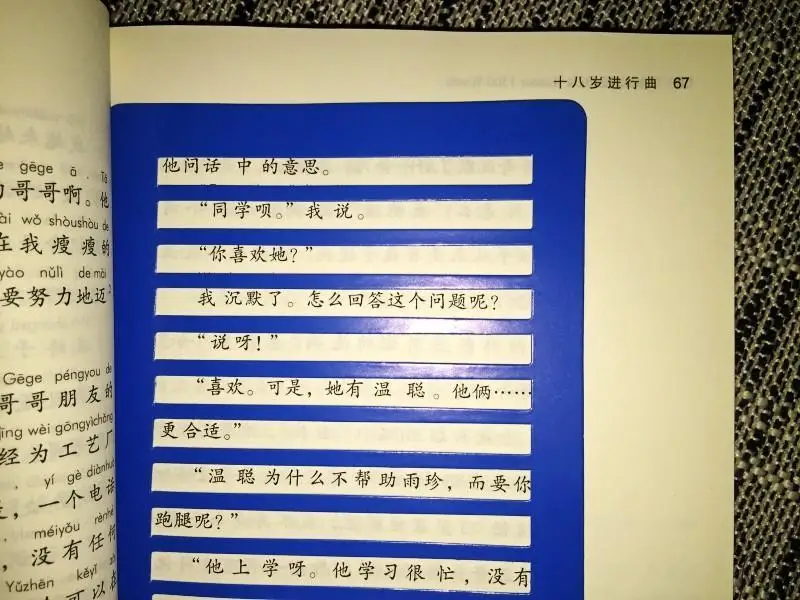 gēge ā. Tā
哥哥啊。他
wǒ shòushòu de
在我瘦瘦的
yào nǔlì de mài
要努力地迈
Gēge péngyou de
哥哥朋友的
jīng wèi gōngyìchǎng
经为工艺厂
yí gè diànhuà
，一个电话
méiyǒu rènhé
，没有任何
Yǔzhēn kěyǐ
可以在
十八岁进行曲 67
他问话中的意思。
“同学呗。”我说。
“你喜欢她？”
我沉默了。怎么回答这个问题呢？
“说呀！”
“喜欢。可是，她有温聪。他俩……
更合适。”
“温聪为什么不帮助雨珍，而要你
跑腿呢？”
“他上学呀。他学习很忙，没有